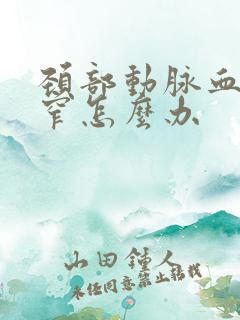 頸部動脉血
窄怎麼办
山田鍾人
未经同意禁止转载